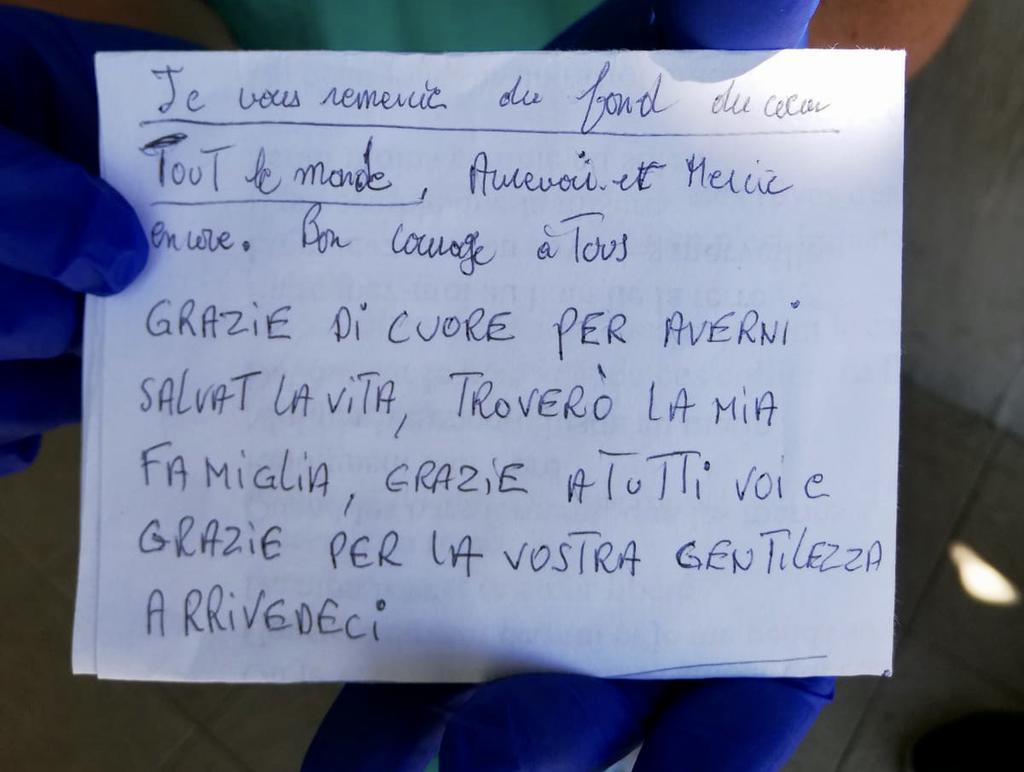 Je vous remercie du fond du cœur
TOUT le monde, Aurevoir et Mercie
encore. Bon courage à Tous
GRAZIE DI CUORE PER AVERNI
SALVAT LA VITA, TROVERÒ LA MIA
FAMIGLIA, GRAZIE A TUTTI VOI e
GRAZIE PER LA VOSTRA GENTILEZZA
ARRIVEDECI